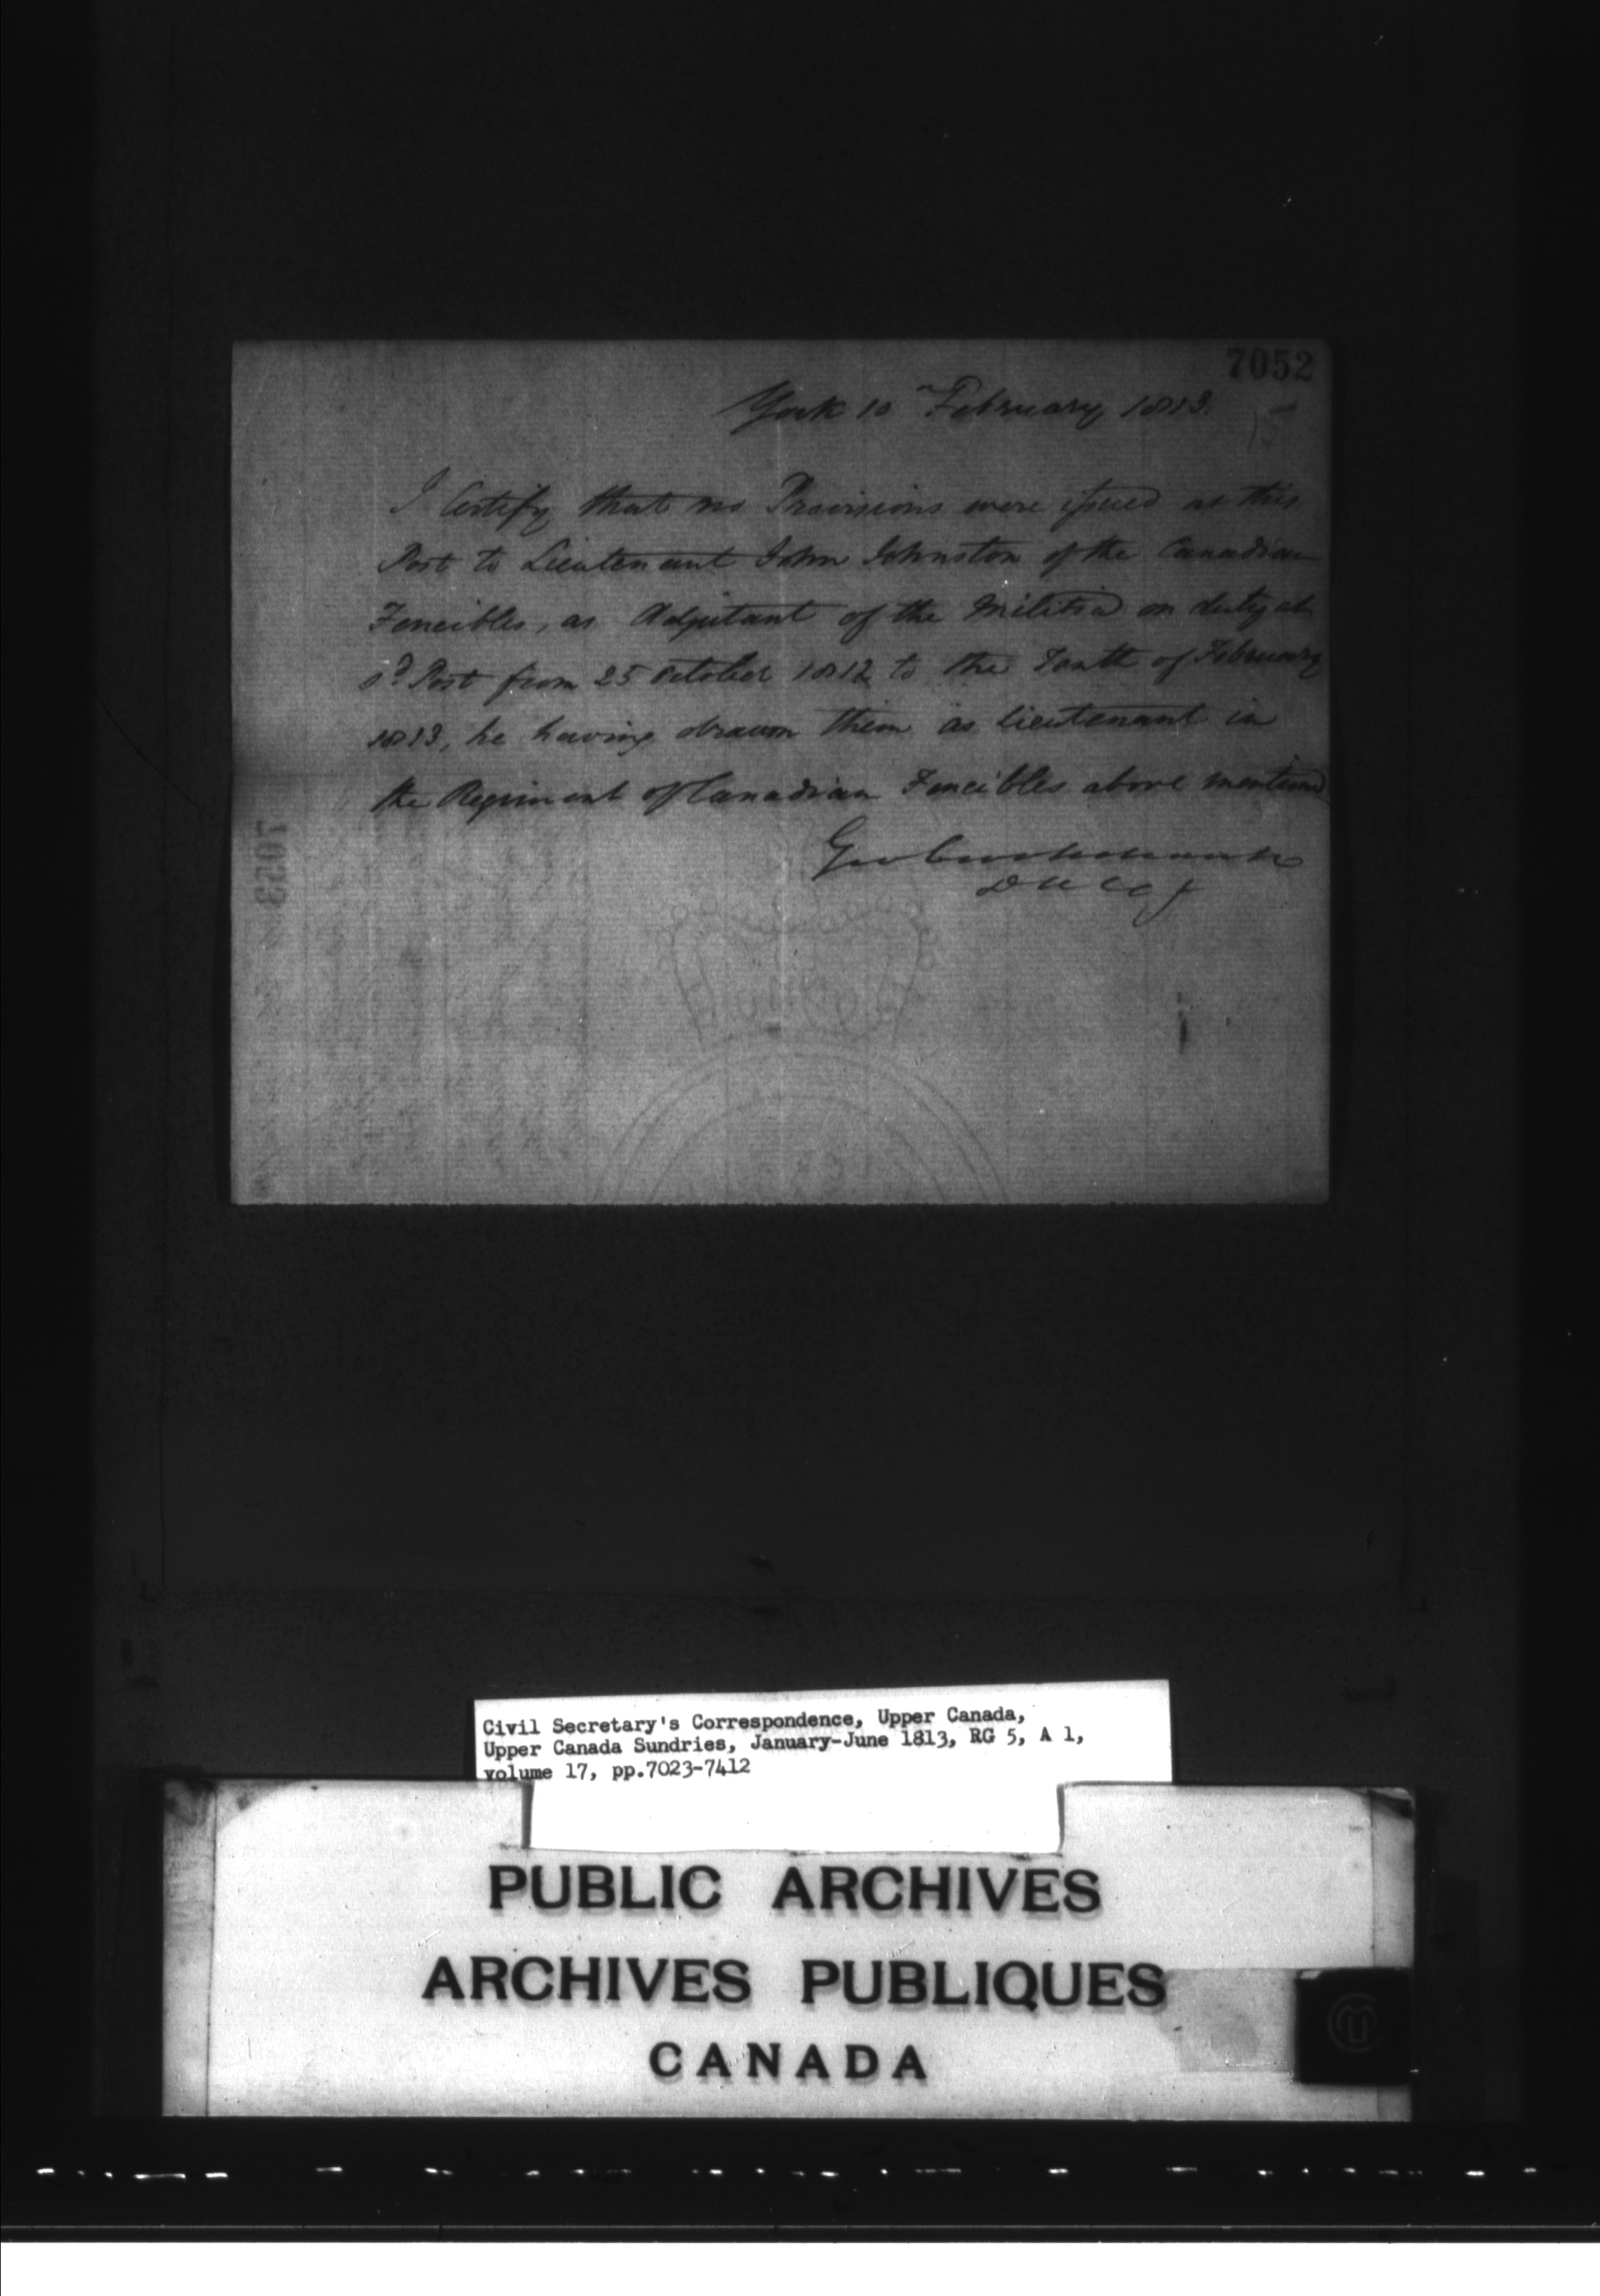 7052
York 10th February 1813.
15
I Certify that no Provisions were issued at this
Post to Lieutenant John Johnston of the Canadian
Fencibles, as Adjutant of the Militia on duty at
sd. Post from 25 October 1812 to the Tenth of February
1813, he having drawn them as lieutenant in
the Regiment of Canadian Fencibles above mentioned
Geo Crookshank
7053
Civil Secretary's Correspondence, Upper Canada,
Upper Canada Sundries, January-June 1813, RG 5, A 1,
volume 17, pp.7023-7412
PUBLIC ARCHIVES
ARCHIVES PUBLIQUES
CANADA